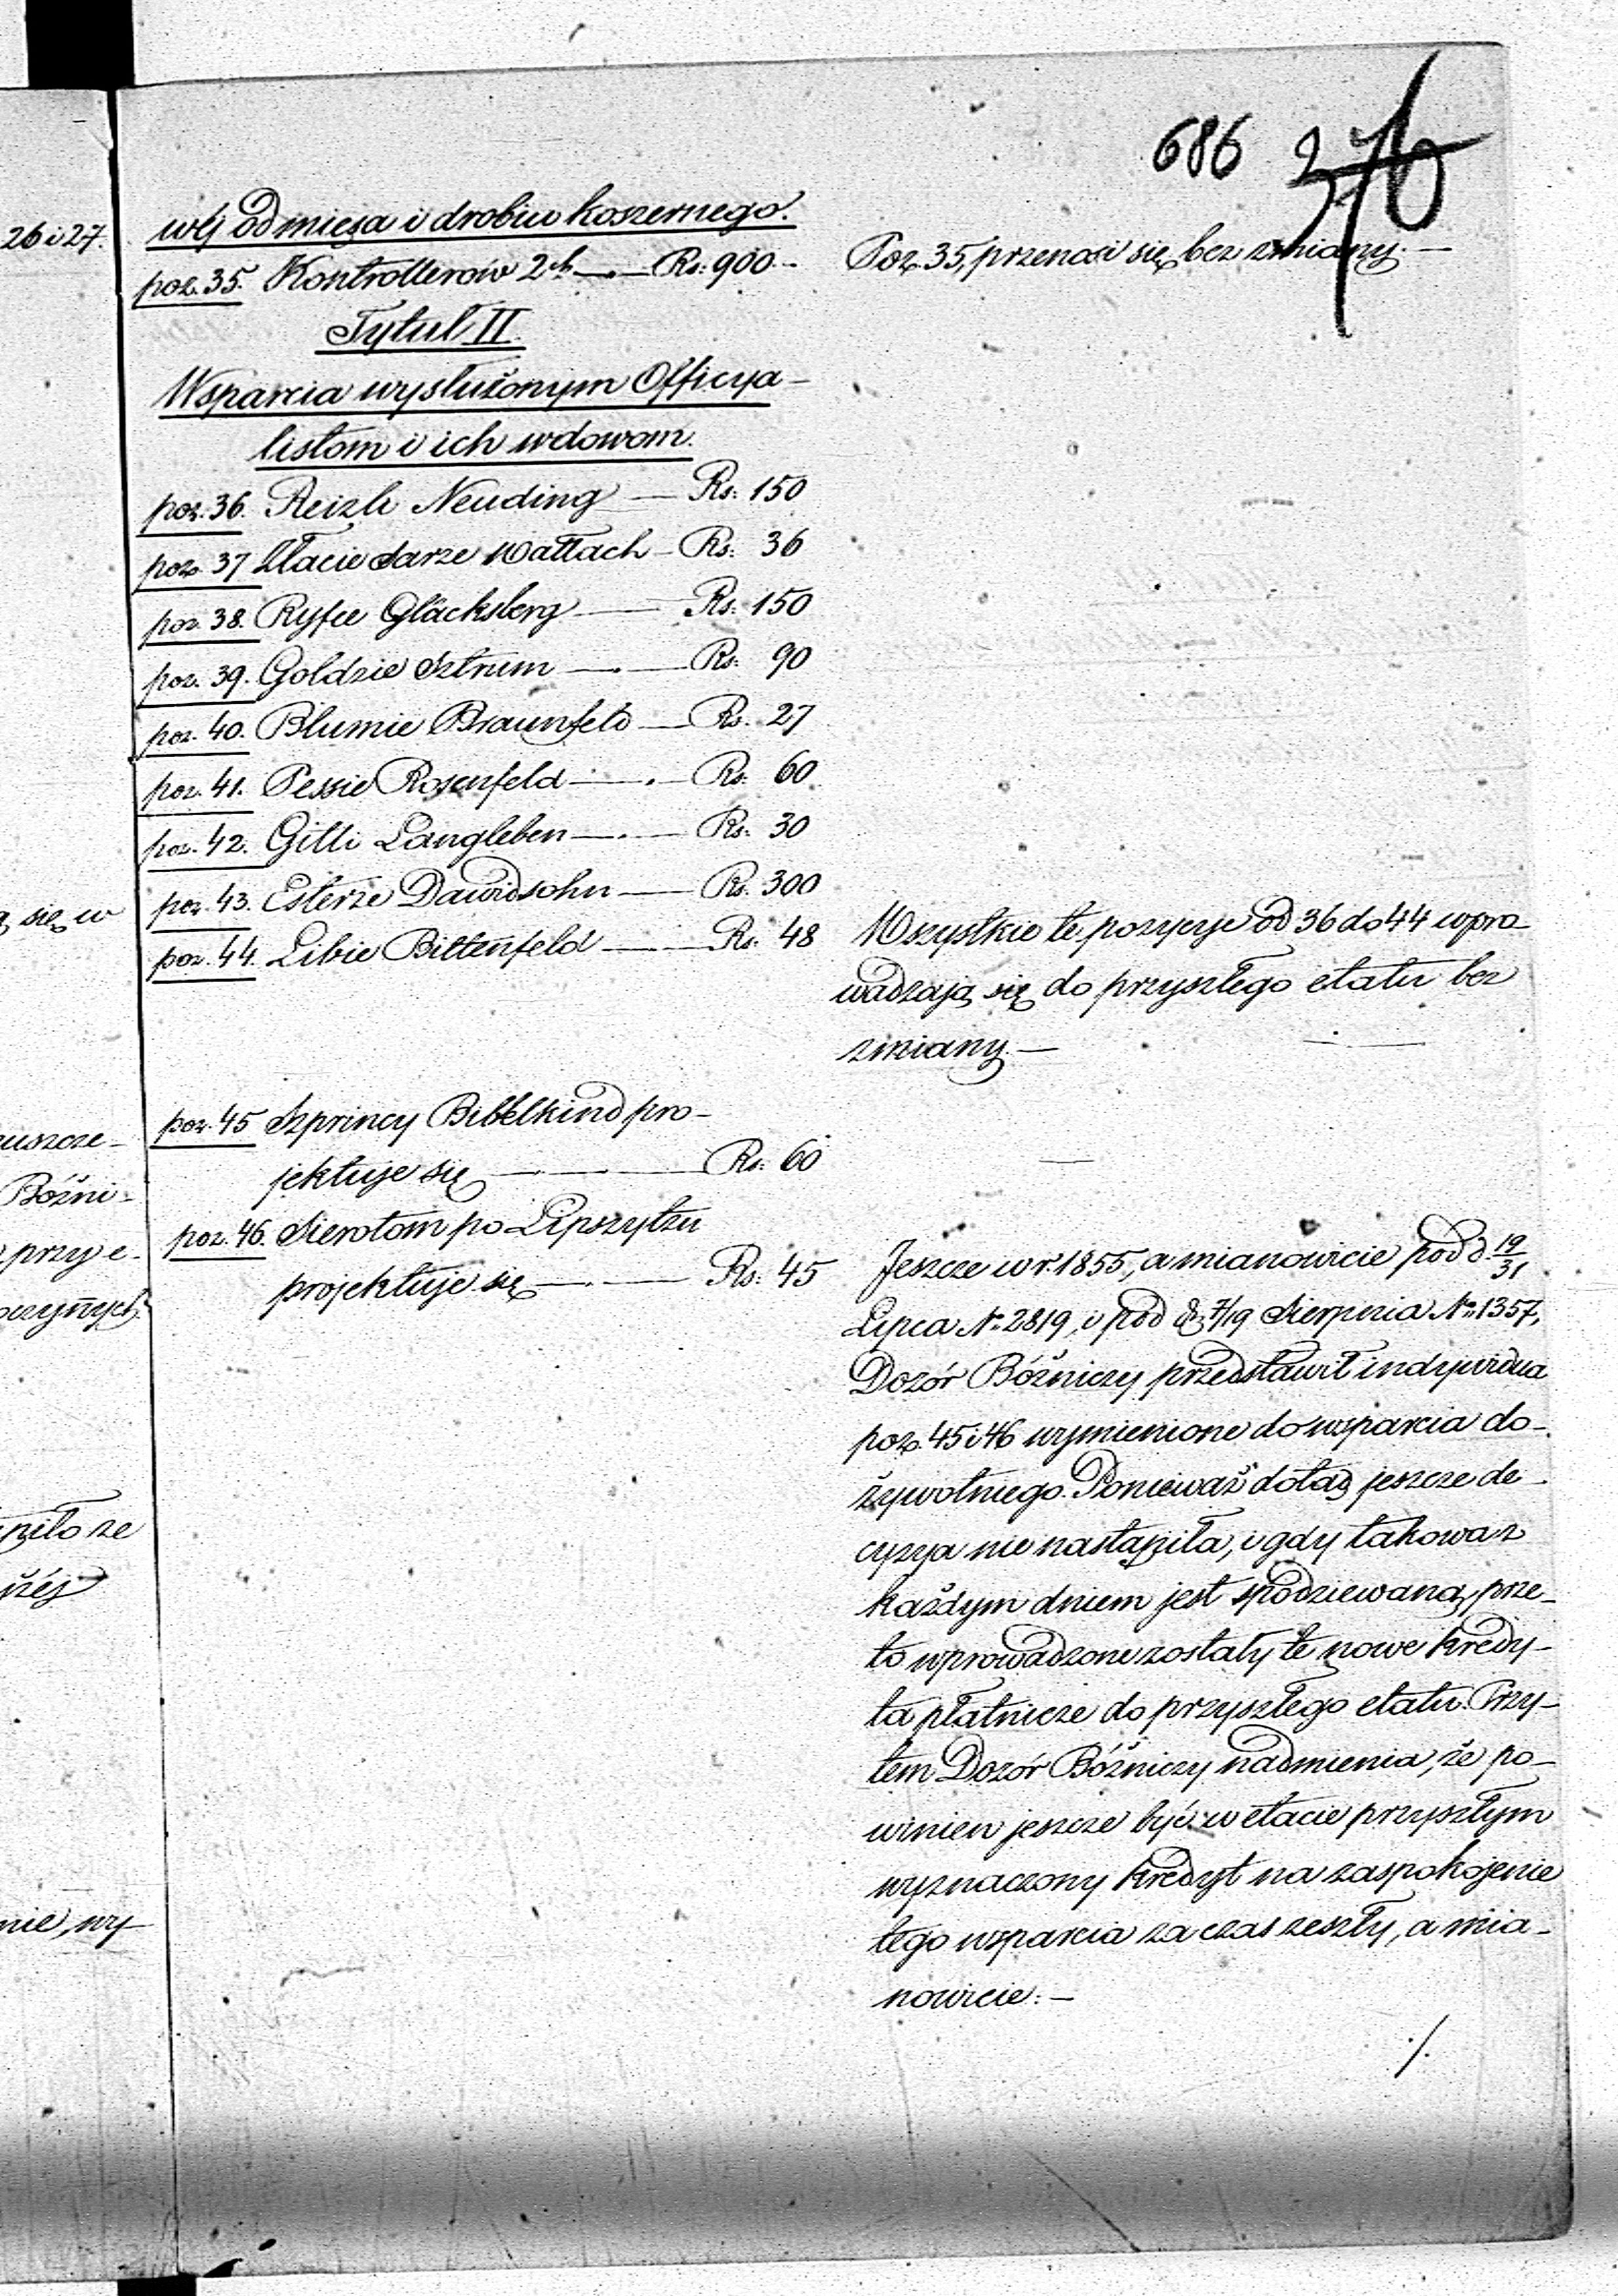 686 276
26 i 27.
wéj od mięsa i drobiu koszernego.
poz. 35. Kontrollerów 2ch — . — Rs: 900 —
Poz. 35, przenosi się bez zmiany. —
Tytuł II.
Wsparcia wysłużonym Officya-
listom i ich wdowom.
poz. 36. Reizli Neuding — Rs: 150
poz. 37 Złacie Sarze Wallach — Rs: 36
poz. 38. Ryfce Glücksberg — Rs: 150
poz. 39. Goldzie Sztrum — . — Rs: 90
poz. 40. Blumie Braunfeld — Rs. 27
poz. 41. Pessie Rosenfeld — . — Rs: 60
poz. 42. Gitli Langleben — . — Rs: 30
poz. 43. Esterze Dawidsohn — Rs. 300
poz. 44. Libie Bittenfeld — Rs: 48
ą się w
Wszystkie te pozycye od 36 do 44 wpro-
wadzają się do przyszłego etatu bez
zmiany. —
poz. 45 Szprincy Bibelkind pro-
jektuje się — Rs: 60
poz. 46. Sierotom po Lipszytzu
projektuje się — . — Rs: 45
uszcze-
Bóźni-
przy e-
Jeszcze w r. 1855, a mianowicie pod d. 19/31
Lipca No 2819, i pod d. 7/19 Sierpnia No 1357,
Dozór Bóźniczy przedstawił indywidua
poz. 45 i 46 wymienione do wsparcia do-
żywotniego. Ponieważ dotąd jeszcze de-
cyzya nie nastąpiła, i gdy takowa z
każdym dniem jest spodziewaną, prze-
to wprowadzone zostały te nowe kredy-
ta płatnicze do przyszłego etatu. Przy-
tem Dozór Bóźniczy nadmienia, że po-
winien jeszcze być w etacie przyszłym
wyznaczony kredyt na zaspokojenie
tego wsparcia za czas zeszły, a mia-
nowicie: —
piło ze
nie, wy-
./.